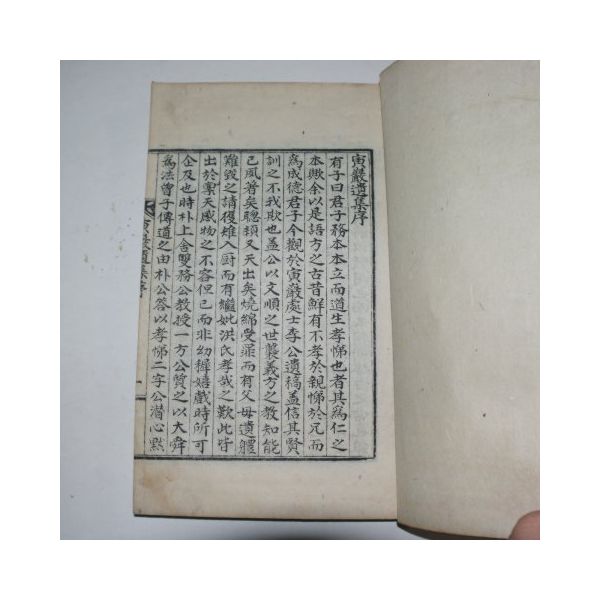 寅巖遺集序
有子曰君子務本本立而道生孝悌也者其爲仁之
本歟余以是語方之古昔鮮有不孝於親悌於兄而
爲成德君子今觀於寅巖處士李公遺稿盖信其賢
訓之不我欺也盖公以文順之世襲義方之教知能
已夙著矣聰頴又天出矣燒綿受罪而有父母遺體
難毀之請獲雉入廚而有繼妣洪氏孝哉之歎此皆
出於禀天感物之不容但已而非幼穉嬉戱時所可
企及也時朴上舍雙務公教授一方公質之以大舜
爲法曾子傳道之由朴公答以孝悌二字公潜心默
寅巖遺集序
一